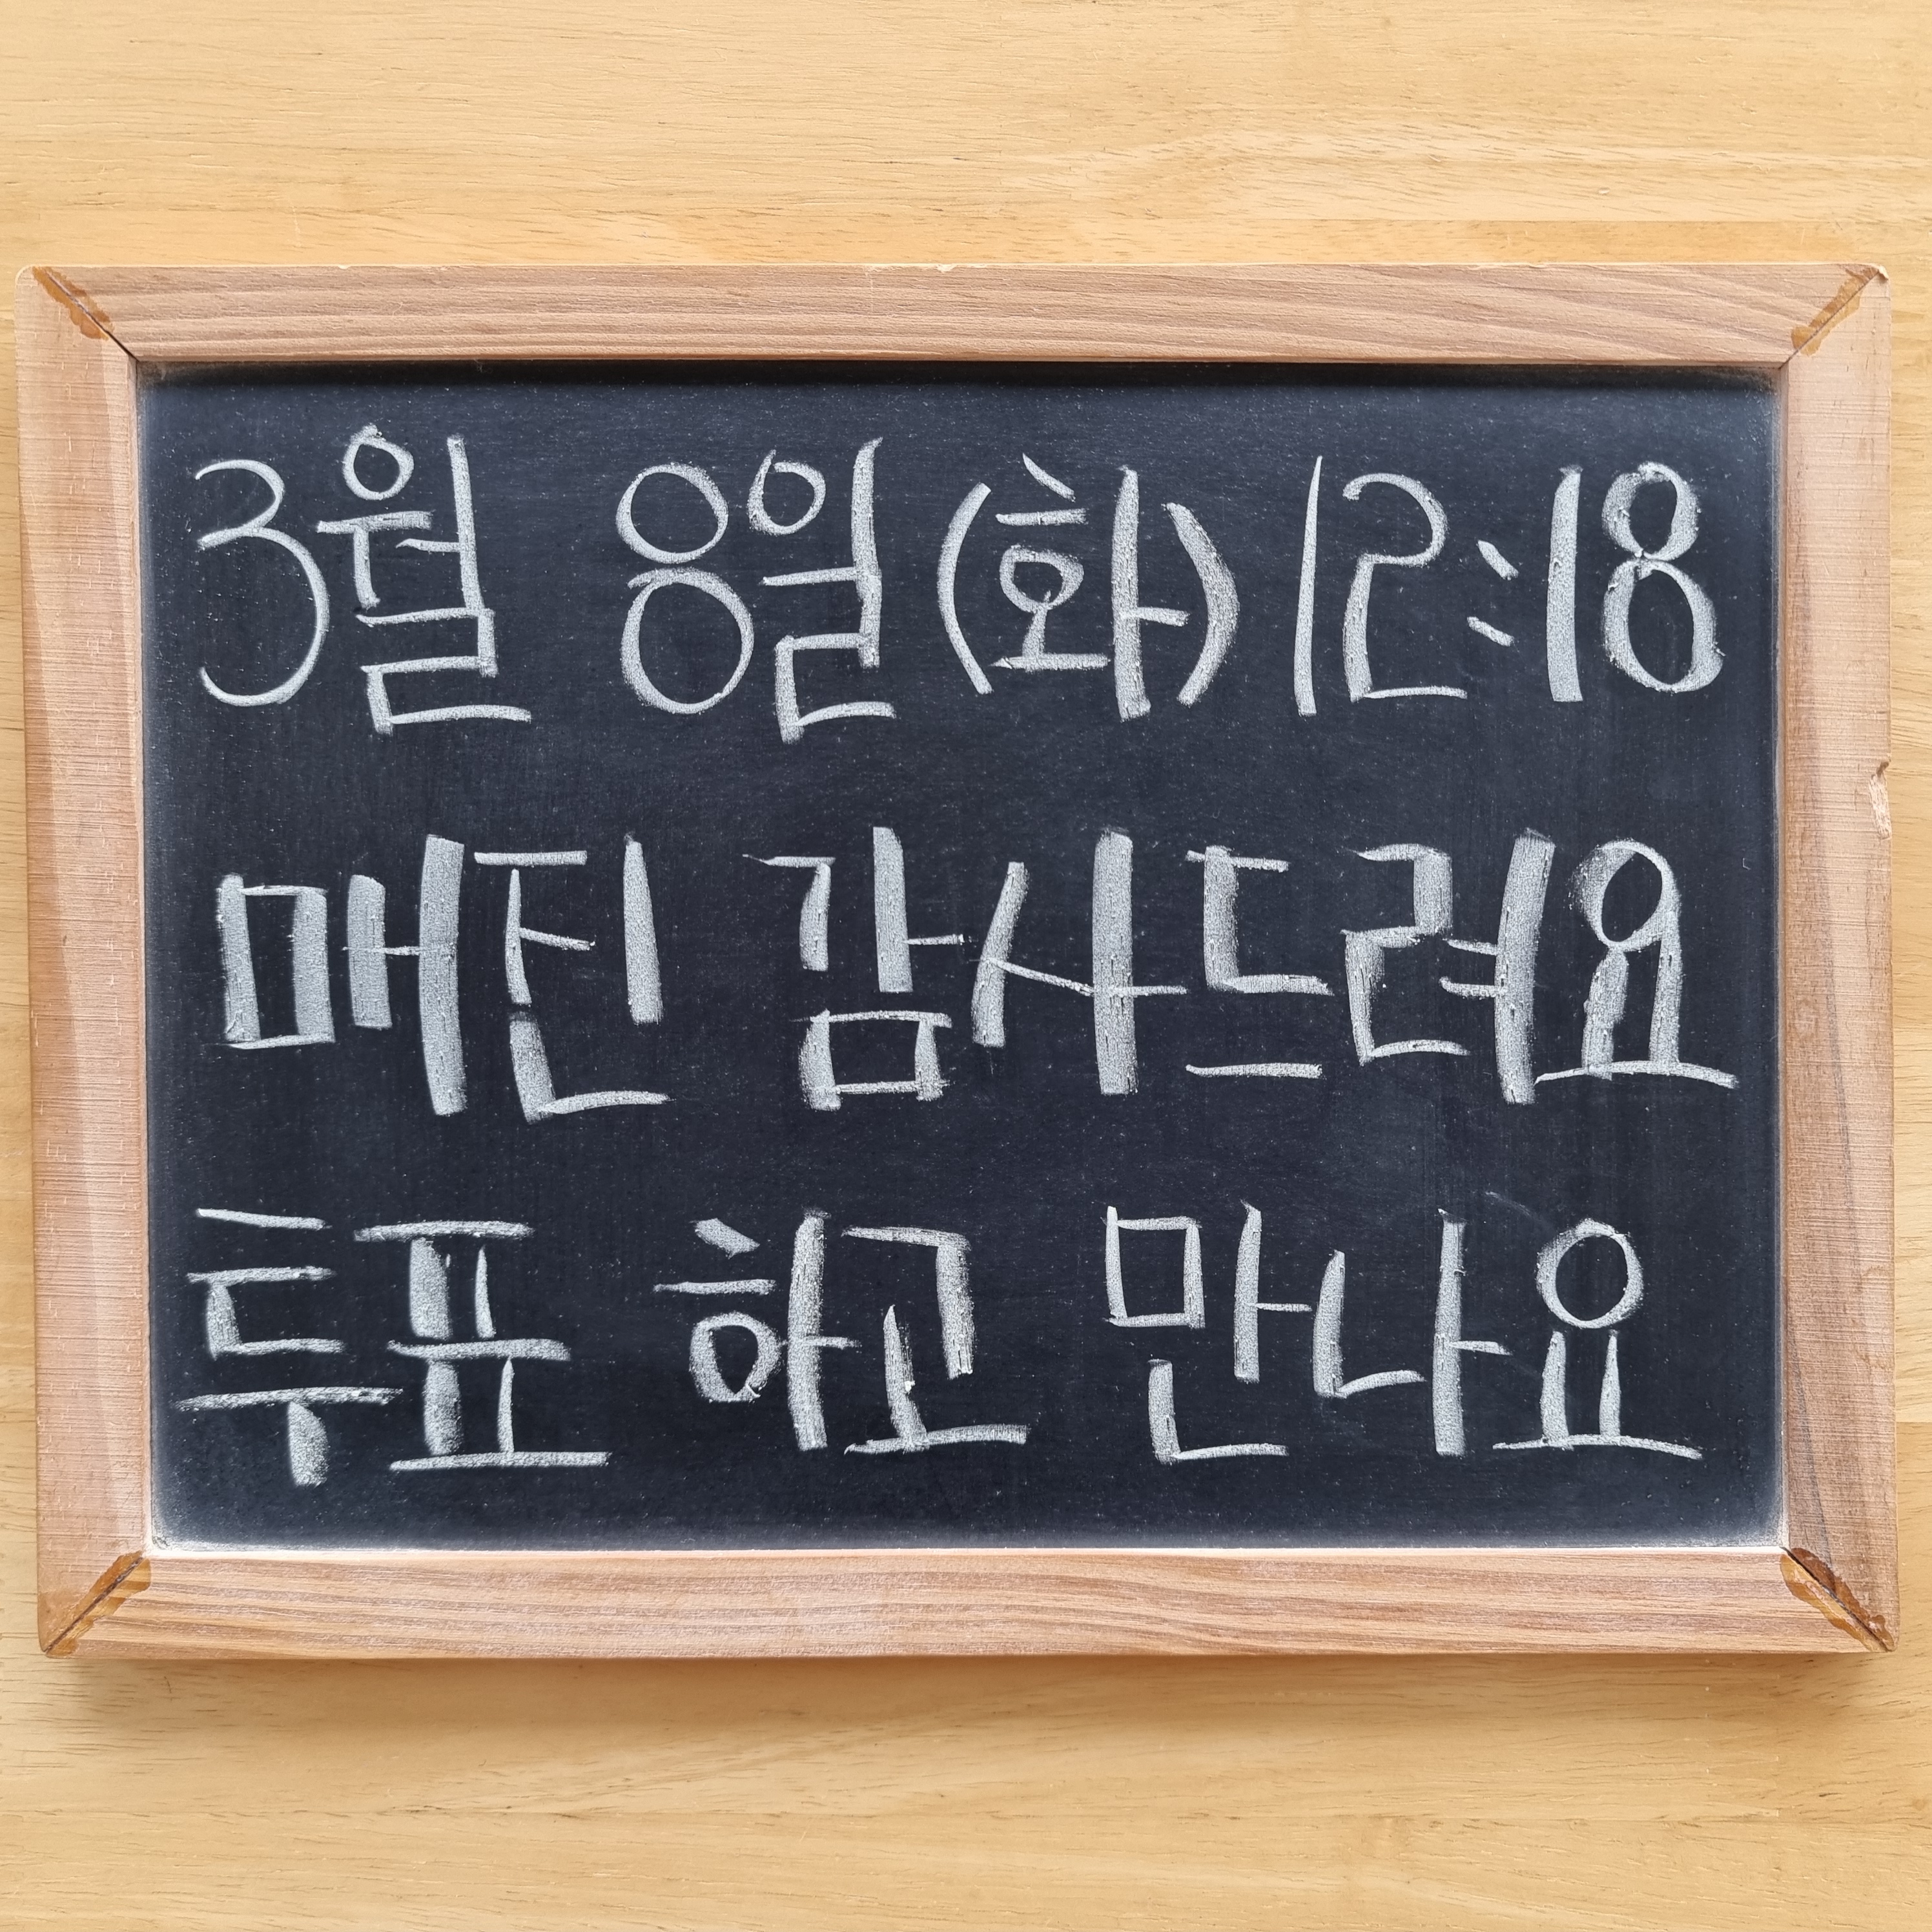 3월 8일(화) 12:18
매진 감사드려요
투표 하고 만나요